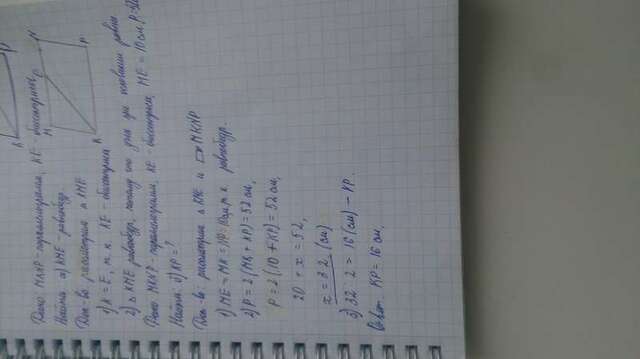 Дано: MKNP - параллелограмм, KE - биссектриса
Найти: а) KME - равнобедр.
Док-во: рассмотрим △ KME
1) K = E, т.к. KE - биссектриса
2) △ KME равнобедр., потому что углы при основании равны
Дано: MKNP - параллелограмм, KE - биссектриса, ME = 10 см, P = 52
Найти: б) KP = ?
Док-во: рассмотрим △ KME и ▱ MKNP
1) ME = MK = NP = 10 см, т.к. равнобедр.
2) P = 2(MK + KP) = 52 см,
P = 2(10 + KP) = 52 см,
20 + x = 52,
x = 32 (см)
3) 32 : 2 = 16 (см) - KP.
Ответ: KP = 16 см.